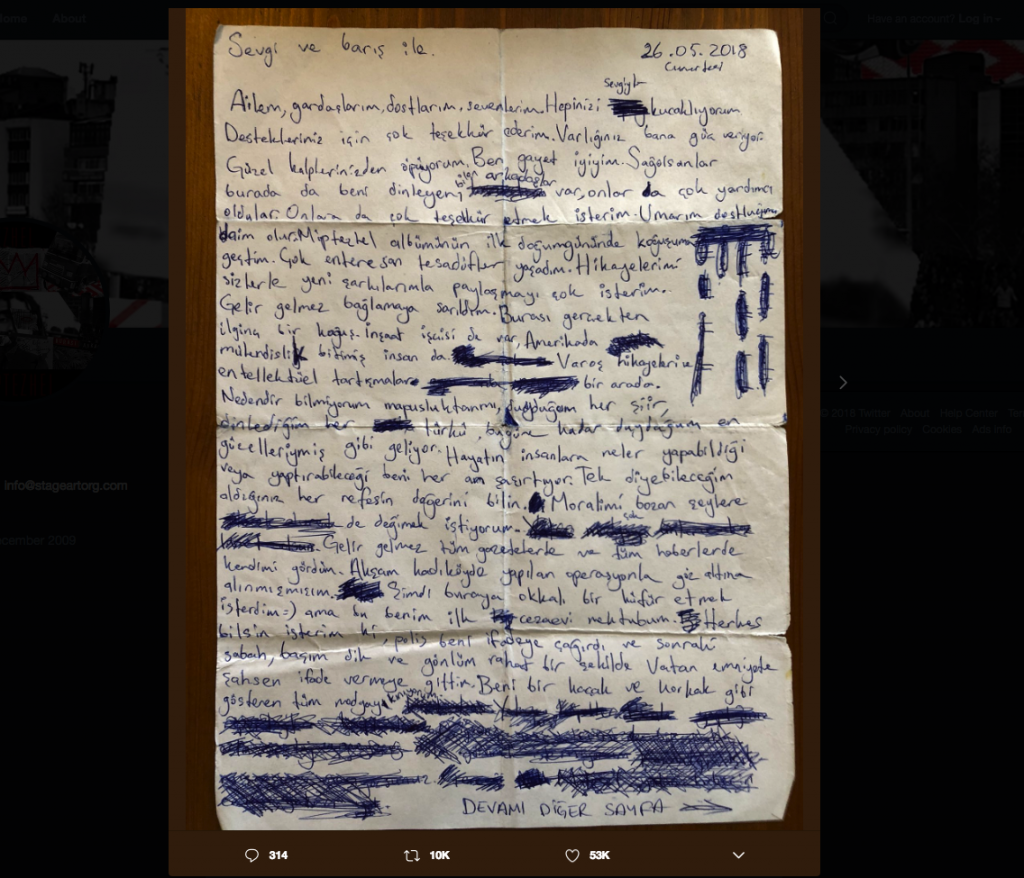 Home About
Have an account? Log in
Sevgi ve barış ile.
26.05.2018
Cumartesi
Sevgiyle
Ailem, gardaşlarım, dostlarım, sevenlerim. Hepinizi kucaklıyorum
Destekleriniz için çok teşekkür ederim. Varlığınız bana güç veriyor.
Güzel kalplerinizden öpüyorum. Ben gayet iyiyim. Sağolsunlar
bilen arkadaşlar
burada da beni dinleyen, var, onlar da çok yardımcı
oldular. Onlara da çok teşekkür etmek isterim. Umarım dostluğumuz
daim olur. Mipteztel albümünün ilk doğumgününde koğuşuma
geçtim. Çok enteresan tesadüfler yaşadım. Hikayelerimi
sizlerle yeni şarkılarımla paylaşmayı çok isterim.
Gelir gelmez bağlamaya sarıldım. Burası gerçekten
ilginç bir koğuş. İnşaat işçisi de var, Amerikada
mühendislik bitirmiş insan da. Varoş hikayeleri
entellektüel tartışmalar bir arada.
Nedendir bilmiyorum mapusluktanmı, duyduğum her şiir,
dinlediğim her türkü, bugüne kadar duyduğum en
güzelleriymiş gibi geliyor. Hayatın insanlara neler yapabildiği
veya yaptırabileceği beni her an şaşırtıyor. Tek diyebileceğim
aldığınız her nefesin değerini bilin. Moralimi bozan şeylere
de değinmek istiyorum.
Gelir gelmez tüm gazetelerle ve tüm haberlerde
kendimi gördüm. Akşam kadıköyde yapılan operasyonla göz altına
alınmışmışım. Şimdi buraya okkalı bir küfür etmek
isterdim =) ama bu benim ilk cezaevi mektubum. Herkes
bilsin isterim ki, polis beni ifadeye çağırdı ve sonraki
sabah, başım dik ve gönlüm rahat bir şekilde Vatan emniyete
şahsen ifade vermeye gittim. Beni bir kaçak ve korkak gibi
gösteren tüm medyayı kınıyorum
DEVAMI DİĞER SAYFA →
314 10K 53K
© 2018 Twitter About Help Center
Privacy policy Cookies Ads info
info@stageartorg.com
2009